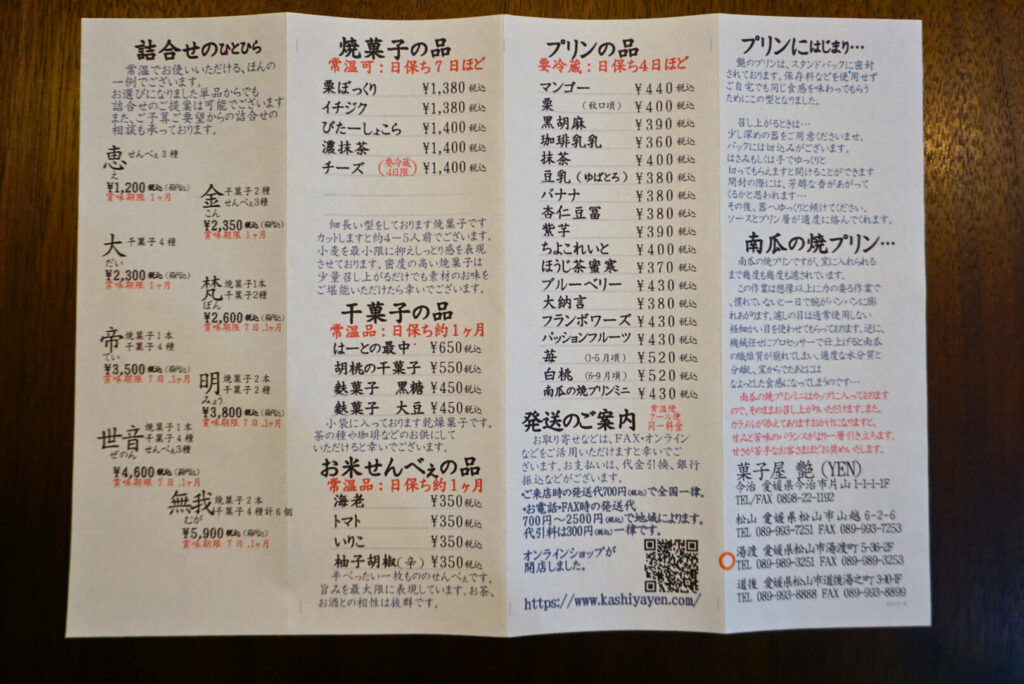 詰合せのひとひら
常温でお使いいただける、ほんの
一例でございます。
お選びになりました単品からでも
詰合せのご提案は可能でございます
また、ご予算ご要望からの詰合せの
相談も承っております。
恵 せんべぇ3種
え
¥1,200税込(箱代込)
賞味期限 1ヶ月
金 干菓子2種
せんべぇ3種
こん
¥2,350税込(箱代込)
賞味期限 1ヶ月
大 干菓子4種
だい
¥2,300税込(箱代込)
賞味期限 1ヶ月
梵 焼菓子1本
干菓子2種
ぼん
¥2,600税込(箱代込)
賞味期限 7日,1ヶ月
帝 焼菓子1本
干菓子4種
てい
¥3,500税込(箱代込)
賞味期限 7日,1ヶ月
明 焼菓子2本
干菓子2種
みょう
¥3,800税込(箱代込)
賞味期限 7日,1ヶ月
世音 焼菓子1本
干菓子4種
せんべぇ3種
ぜのん
¥4,600税込(箱代込)
賞味期限 7日,1ヶ月
無我 焼菓子2本
干菓子4種計6個
むが
¥5,900税込(箱代込)
賞味期限 7日,1ヶ月
焼菓子の品
常温可:日保ち7日ほど
栗ぼっくり ¥1,380税込
イチジク ¥1,380税込
びたーしょこら ¥1,400税込
濃抹茶 ¥1,400税込
チーズ(要冷蔵4日限) ¥1,400税込
細長い型をしております焼菓子です
カットしますと約4−5人前でございます。
小麦を最小限に抑えしっとり感を表現
させております。密度の高い焼菓子は
少量召し上がるだけでも素材のお味を
ご堪能いただけたら幸いでございます。
干菓子の品
常温品:日保ち約1ヶ月
はーとの最中 ¥650税込
胡桃の干菓子 ¥550税込
麩菓子 黒糖 ¥450税込
麩菓子 大豆 ¥450税込
小袋に入っております乾燥菓子です。
茶の種や珈琲などのお供にして
いただけると幸いでございます。
お米せんべぇの品
常温品:日保ち約1ヶ月
海老 ¥350税込
トマト ¥350税込
いりこ ¥350税込
柚子胡椒(辛) ¥350税込
平べったい一枚もののせんべぇです。
旨みを最大限に表現しています。お茶、
お酒との相性は抜群です。
プリンの品
要冷蔵:日保ち4日ほど
マンゴー ¥440税込
栗 (秋口頃) ¥400税込
黒胡麻 ¥390税込
珈琲乳乳 ¥360税込
抹茶 ¥400税込
豆乳(ゆばとろ) ¥380税込
バナナ ¥380税込
杏仁豆冨 ¥380税込
紫芋 ¥390税込
ちよこれいと ¥400税込
ほうじ茶蜜寒 ¥370税込
ブルーベリー ¥430税込
大納言 ¥380税込
フランボワーズ ¥430税込
パッションフルーツ ¥430税込
苺 (1-5月頃) ¥520税込
白桃 (6-9月頃) ¥520税込
南瓜の焼プリンミニ ¥430税込
発送のご案内 常温便
クール便
同一料金
お取り寄せなどは、FAX・オンライン
などをご活用いただけますと幸いでご
ざいます。お支払いは、代金引換、銀行
振込などがございます。
・ご来店時の発送代700円(税込)で全国一律。
・お電話・FAX時の発送代
700円〜2500円(税込)で地域によります。
代引料は300円(税込)一律です。
オンラインショップが
開店しました。
https://www.kashiyayen.com/
プリンにはじまり…
艶のプリンは、スタンドパックに密封
されております。保存料などを使用せず
ご自宅でも同じ食感を味わってもらう
ためにこの型となりました。
召し上がるときは…
少し深めの器をご用意くださいませ。
パックには切込みがございます。
はさみもしくは手でゆっくりと
切ってもらえますと開けることができます
開封の際には、芳醇な香があがって
くるかと思われます…
その後、器へゆっくりと傾けてください。
ソースとプリン層が適度に絡んでくれます。
南瓜の焼プリン…
南瓜の焼プリンですが、窯に入れられる
まで幾度も幾度も濾されています。
この作業は想像以上に力の要る作業で
、慣れていないと一日で腕がパンパンに膨
れあがります。濾しの目は通常使用しない
極細かい目を使わせてもらっております。逆に、
機械任せにプロセッサーで仕上げると南瓜
の繊維質が崩れてしまい、適度な水分質と
分離し、窯からでたあとには
なよっとした食感になってしまうのです…
南瓜の焼プリンミニはカップに入っております
ので、そのままお召し上がりいただけます。また、
カラメルが添えてありますおかげになりますと、
甘みと苦味のバランスがより一層引き立ちます。
甘さが苦手なお客さまほどお奨めいたします。
菓子屋 艶(YEN)
今治 愛媛県今治市片山1-1-1-1F
TEL/FAX 0898-22-1192
松山 愛媛県松山市山越6-2-6
TEL 089-993-7251 FAX 089-993-7253
湯渡 愛媛県松山市湯渡町5-36-2F
TEL 089-989-3251 FAX 089-989-3253
道後 愛媛県松山市道後湯之町3-10-1F
TEL 089-993-8888 FAX 089-993-8899